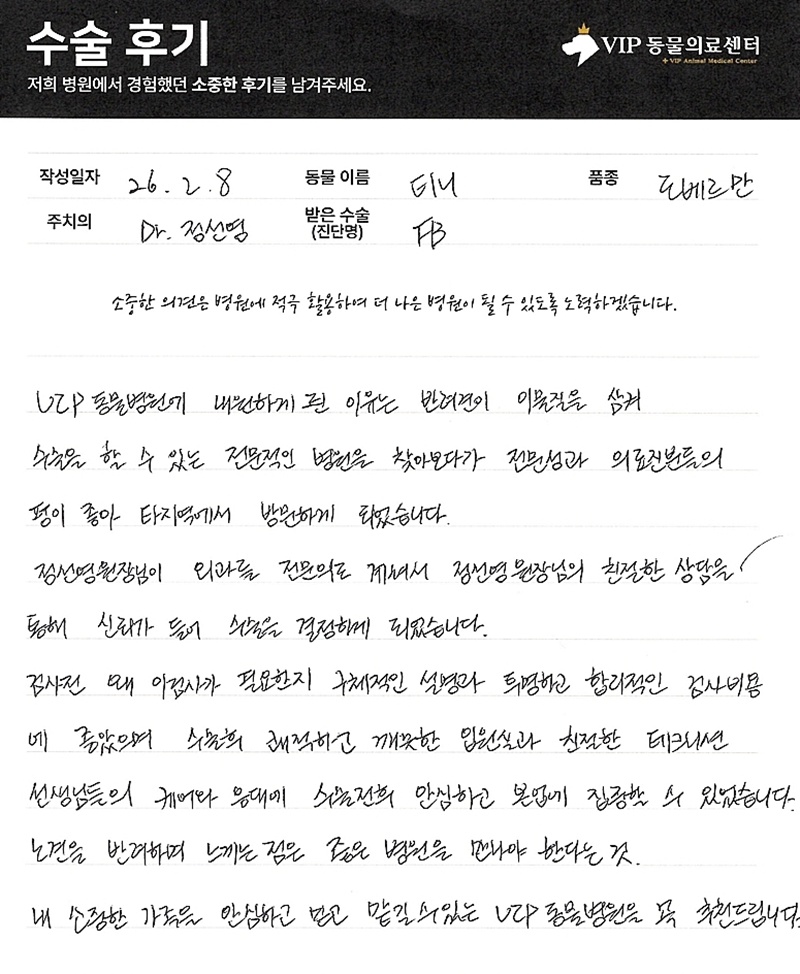 수술 후기
저희 병원에서 경험했던 소중한 후기를 남겨주세요.
VIP 동물의료센터
VIP Animal Medical Center
작성일자 26. 2. 8 동물 이름 티니 품종 도베르만
주치의 Dr. 정선영 받은 수술 (진단명) FB
소중한 의견은 병원에 적극 활용하여 더 나은 병원이 될 수 있도록 노력하겠습니다.
VIP 동물병원에 내원하게 된 이유는 반려견이 이물질을 삼켜
수술을 할 수 있는 전문적인 병원을 찾아보다가 전문성과 의료진분들의
평이 좋아 타지역에서 방원하게 되었습니다.
정선영원장님이 외과를 전문의로 계셔서 정선영원장님의 친절한 상담을
통해 신뢰가 들어 수술을 결정하게 되었습니다.
검사전 왜 이검사가 필요한지 구체적인 설명과 투명하고 합리적인 검사비용
에 좋았으며 수술후 쾌적하고 깨끗한 입원실과 친절한 테크니션
선생님들의 케어와 응대에 수술전후 안심하고 본업에 집중할 수 있었습니다.
노견을 반려하며 느끼는 점은 좋은 병원을 만나야 한다는 것.
내 소중한 가족을 안심하고 믿고 맡길수있는 VIP 동물병원을 꼭 추천드립니다.